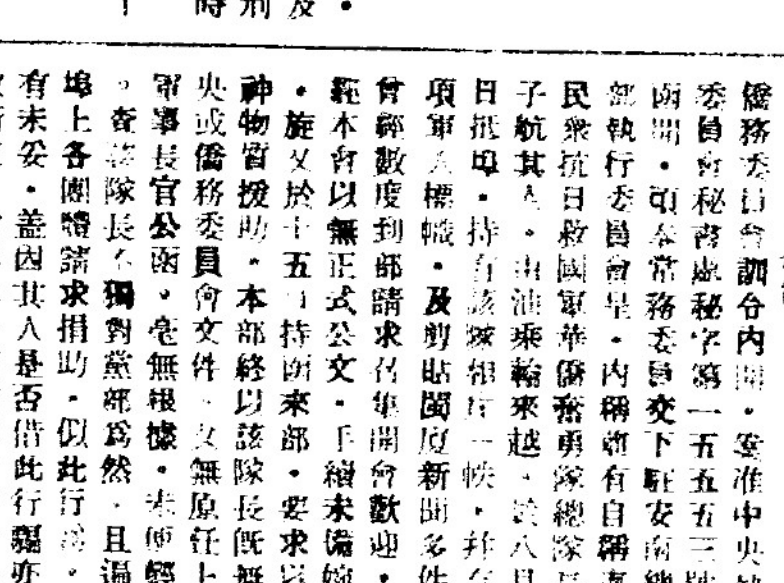 時刑及・
僑務委員會訓令內開・案准中央
委員會秘書處秘字第一五五三號
函開・頃奉常務委員交下駐安南總
部執行委員會呈・內稱頃有自稱
民衆抗日救國軍華僑奮勇隊總隊長
子統其人・由油乘輪來越・於八月
日抵埠・持有該隊相片一帙・并有
項軍人標幟・及剪貼閩廈新聞多件
曾經數度到部請求召集開會歡迎・
經本會以無正式公文・手續未備婉
・旋又於十五日持函來部・要求以
神物質援助・本部終以該隊長旣無
央或僑務委員會文件・又無原任上
軍事長官公函・毫無根據・未便
。查該隊長不獨對黨部爲然・且遍
埠上各團體請求捐助・似此行爲・
有未妥・蓋因其人是否借此行騙亦